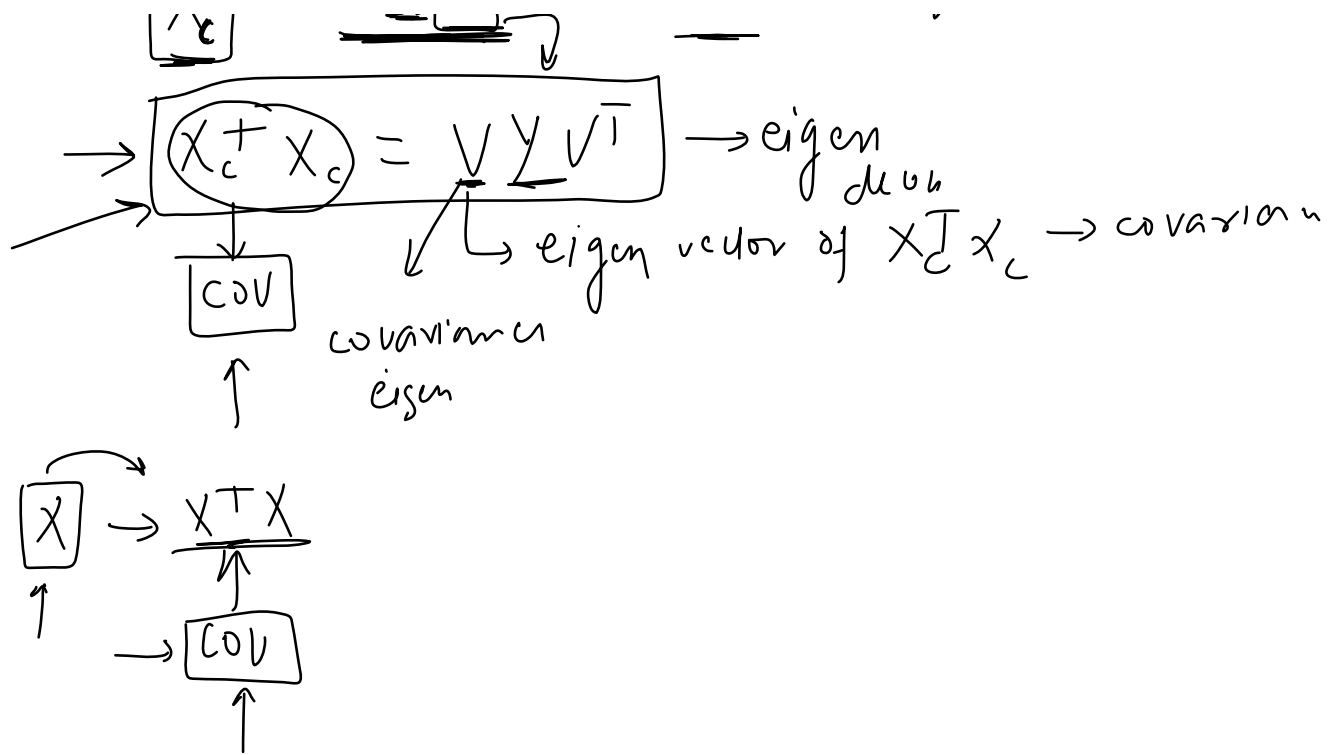 Xc
Xc^T Xc = V Y V^T → eigen
eigen vector of Xc^T Xc → covarian
COV
covariance
eigen
X → X^T X
COV